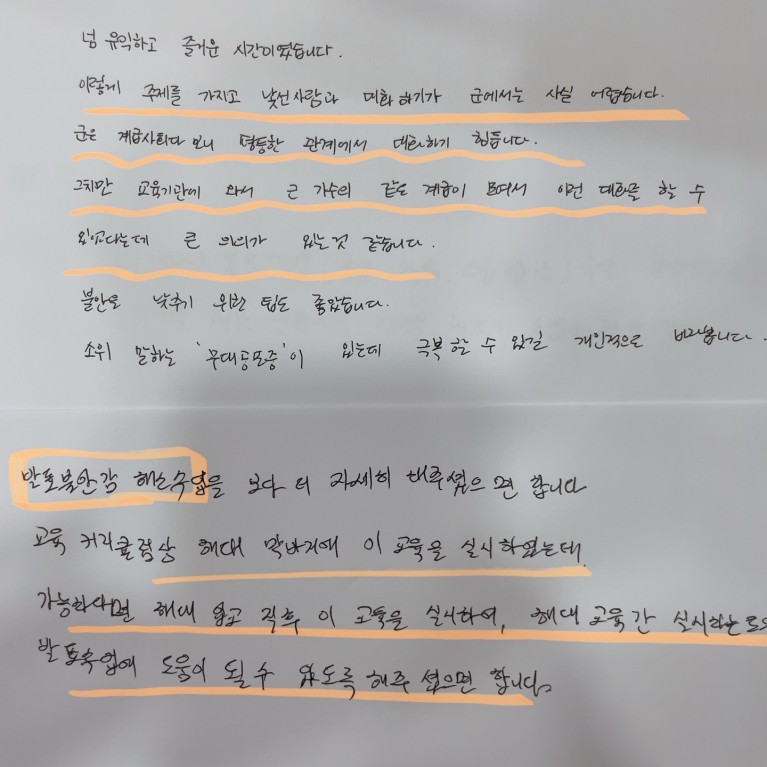 넘 유익하고 즐거운 시간이였습니다.
이렇게 주제를 가지고 낯선사람과 대화하기가 군에서는 사실 어렵습니다.
군은 계급사회다 보니 평등한 관계에서 대화하기 힘듭니다.
그치만 교육기관에 와서 큰 가수의 같은 계급이 모여서 이런 대화를 할 수
있었다는데 큰 의의가 있는것 같습니다.
불안을 낮추기 위한 팁도 좋았습니다.
소위 말하는 '무대공포증'이 있는데 극복할 수 있길 개인적으로 바래봅니다.
발표불안감 해소수업을 보다 더 자세히 해주셨으면 합니다
교육 커리큘럼상 해대 막바지에 이 교육을 실시하였는데,
가능하다면 해대 입교 직후 이 교육을 실시하여, 해대 교육간 실시하는
발표수업에 도움이 될 수 있도록 해주셨으면 합니다.